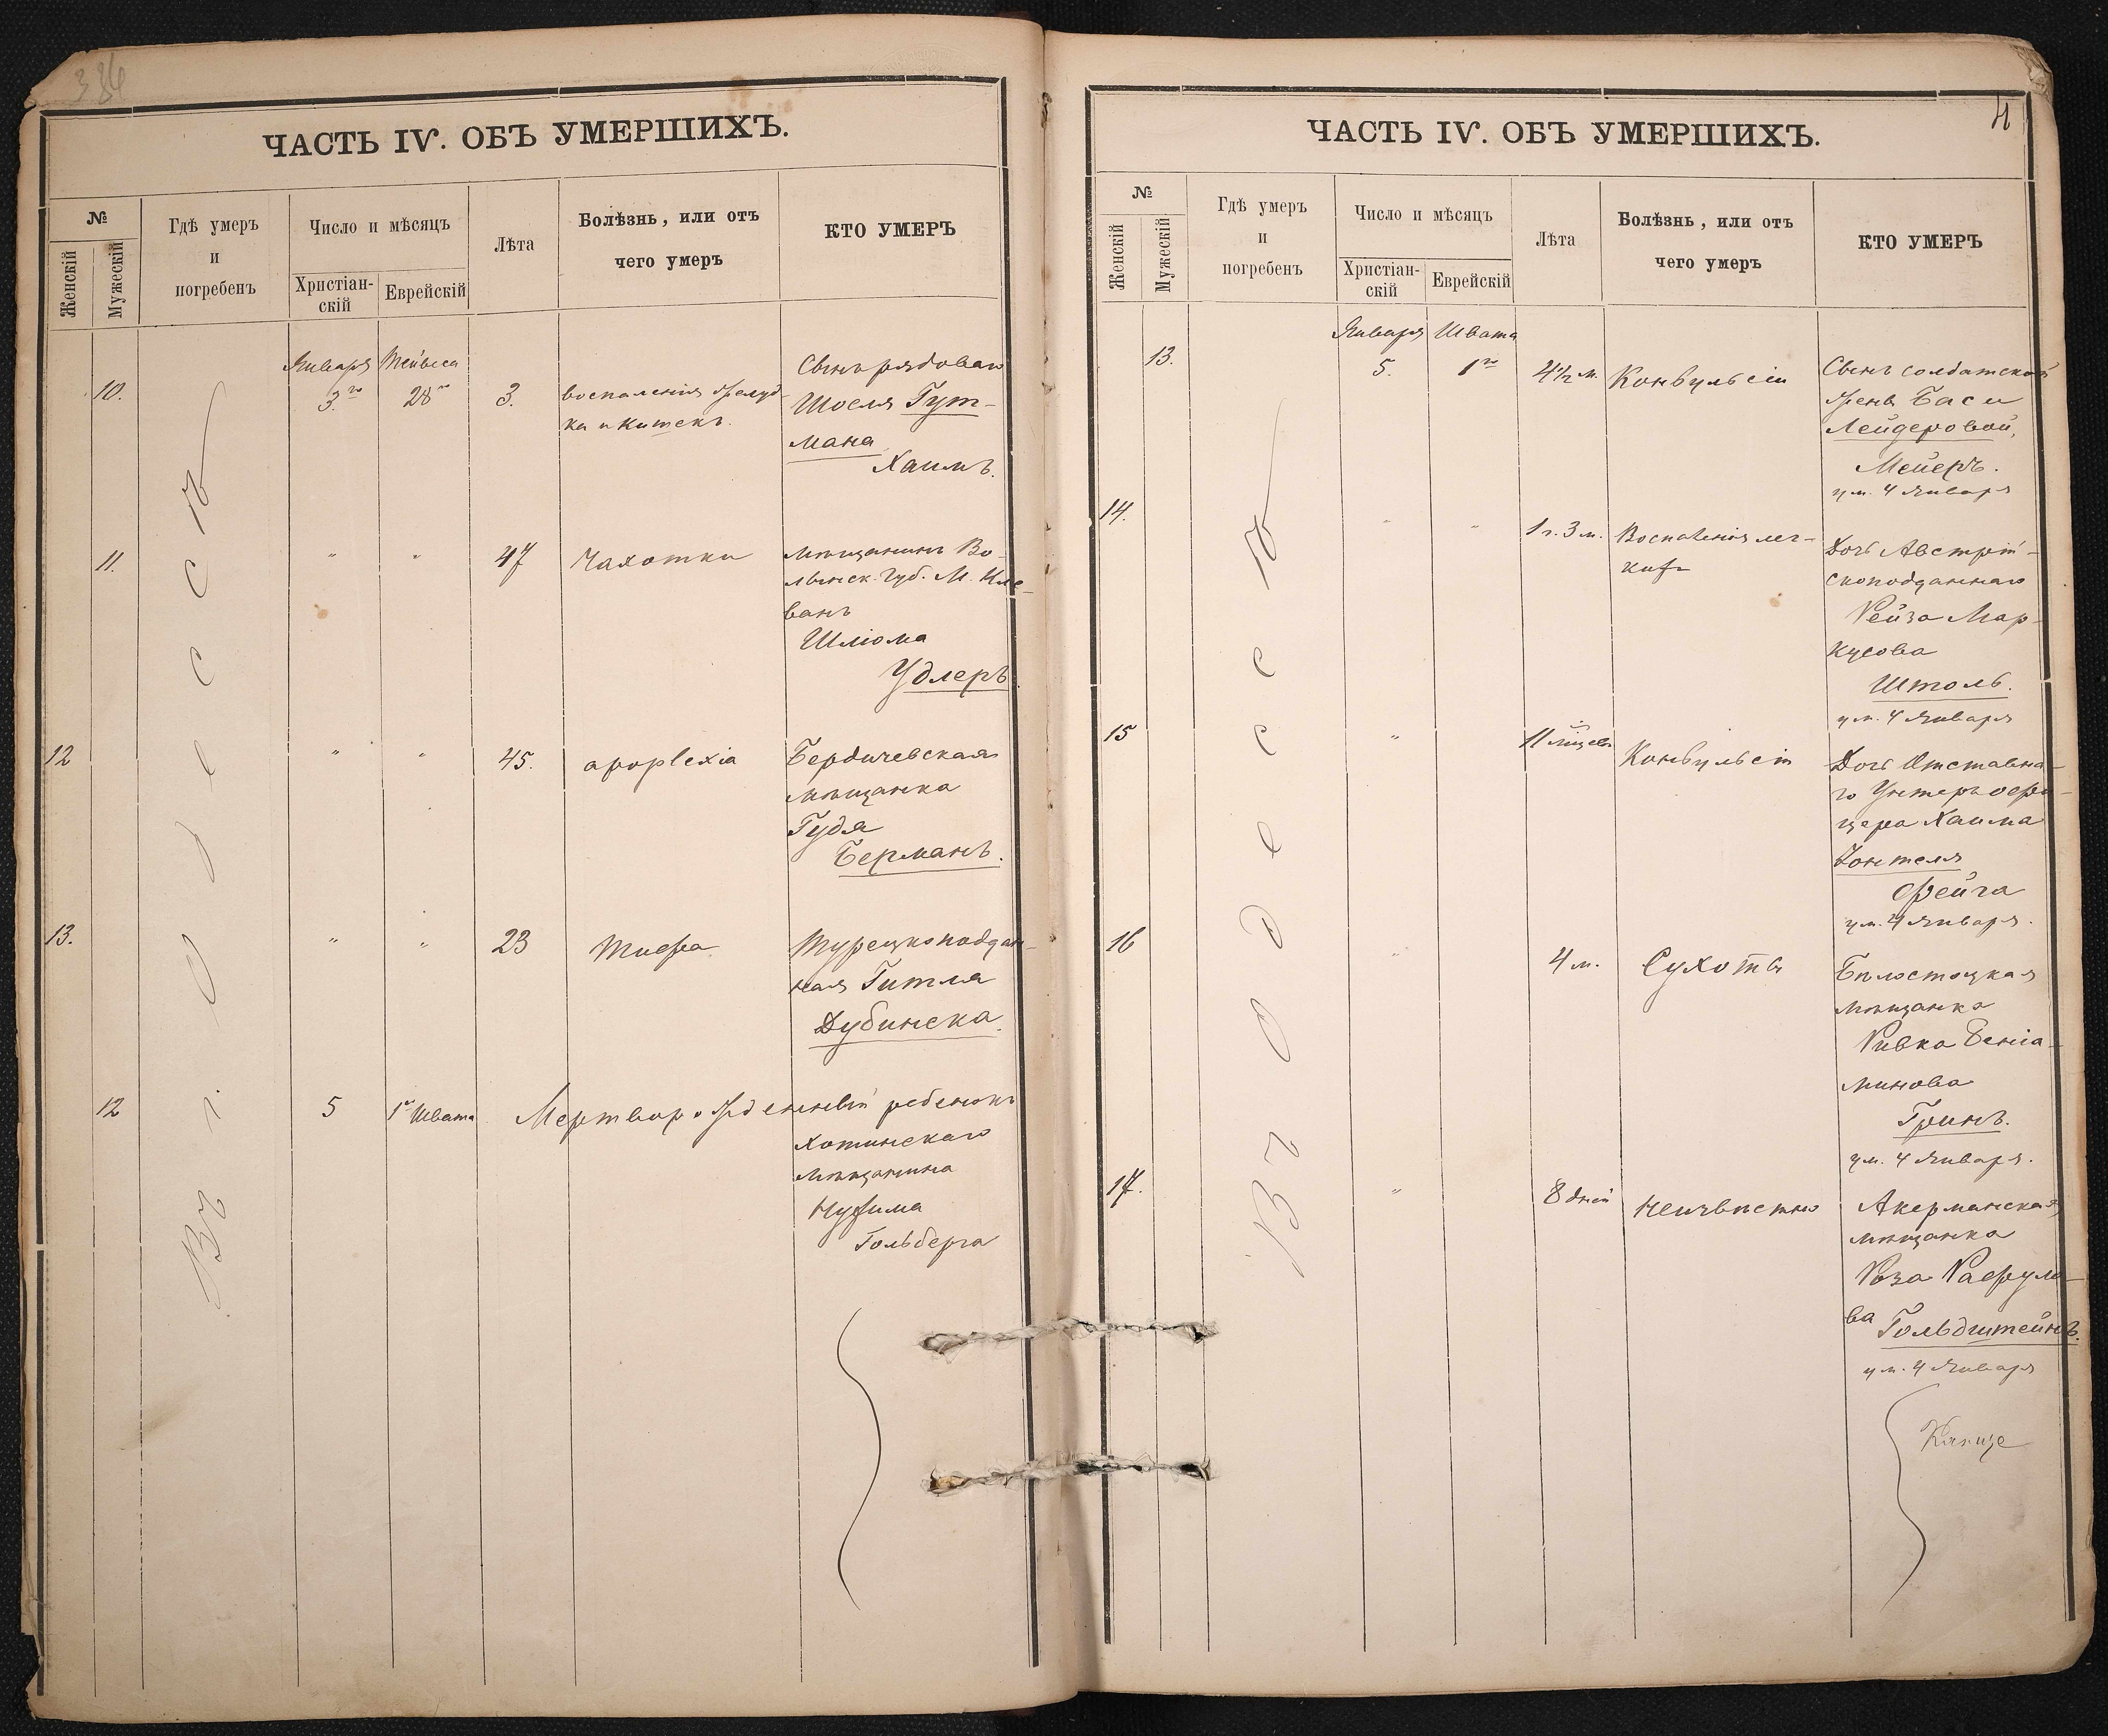 386
ЧАСТЬ IV. ОБЪ УМЕРШИХЪ.
№
Женскій
Мужескій
Гдѣ умеръ
и
погребенъ
Число и мѣсяцъ
Христіан-
скій
Еврейскій
Лѣта
Болѣзнь, или отъ
чего умеръ
КТО УМЕРЪ
Въ г. Одессѣ
Января Тейвеса
10. 3.го 28го 3. воспаленія желуд-
ка и кишекъ.
Сынъ рядоваго
Шоеля Гут-
мана
Хаимъ.
11. " " 47 Чахотки
Мѣщанинъ Во-
лынск. Губ. М. Кле-
вань
Шлiома
Удлеръ
12 " " 45. apoplexia
Бердичевская
мѣщанка
Гудя
Берманъ.
13. " " 23 Тифа
Турецкоподдан-
ная Гитля
Дубинска.
12 5 1го Швата Мертворожденный ребенокъ
Хотинскаго
мѣщанина
Нухима
Гольберга
4
ЧАСТЬ IV. ОБЪ УМЕРШИХЪ.
№
Женскій
Мужескій
Гдѣ умеръ
и
погребенъ
Число и мѣсяцъ
Христіан-
скій
Еврейскій
Лѣта
Болѣзнь, или отъ
чего умеръ
КТО УМЕРЪ
Въ Одессѣ
Января Швата
13. 5. 1го 4½ м. Конвульсіи
Сынъ солдатской
жены Баси
Лейдеровой,
Мейеръ.
ум. 4 Января
14. " " 1 г. 3 м. Воспаленія лег-
кихъ
Дочь Австрій-
скоподданнаго
Рейза Мар-
кусова
Штоль.
ум. 4 Января
15 " 11 Конвульсій
Дочь Отставна-
го Унтеръ офи-
цера Хаима
Зонтеля
Фейга
ум. 4 Января.
16 " 4 м. Сухоты
Бѣлостоцкая
мѣщанка
Ривка Беніа-
минова
Гринъ.
ум. 4 Января.
17. " 8 дней Неизвѣстно
Акерманская
мѣщанка
Роза Рафула-
ва Гольдштейнъ.
ум. 4 Января